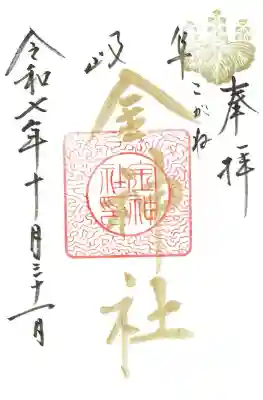 奉拝
岐阜
こがね
金神社
金神社印
令和七年十月三十一日